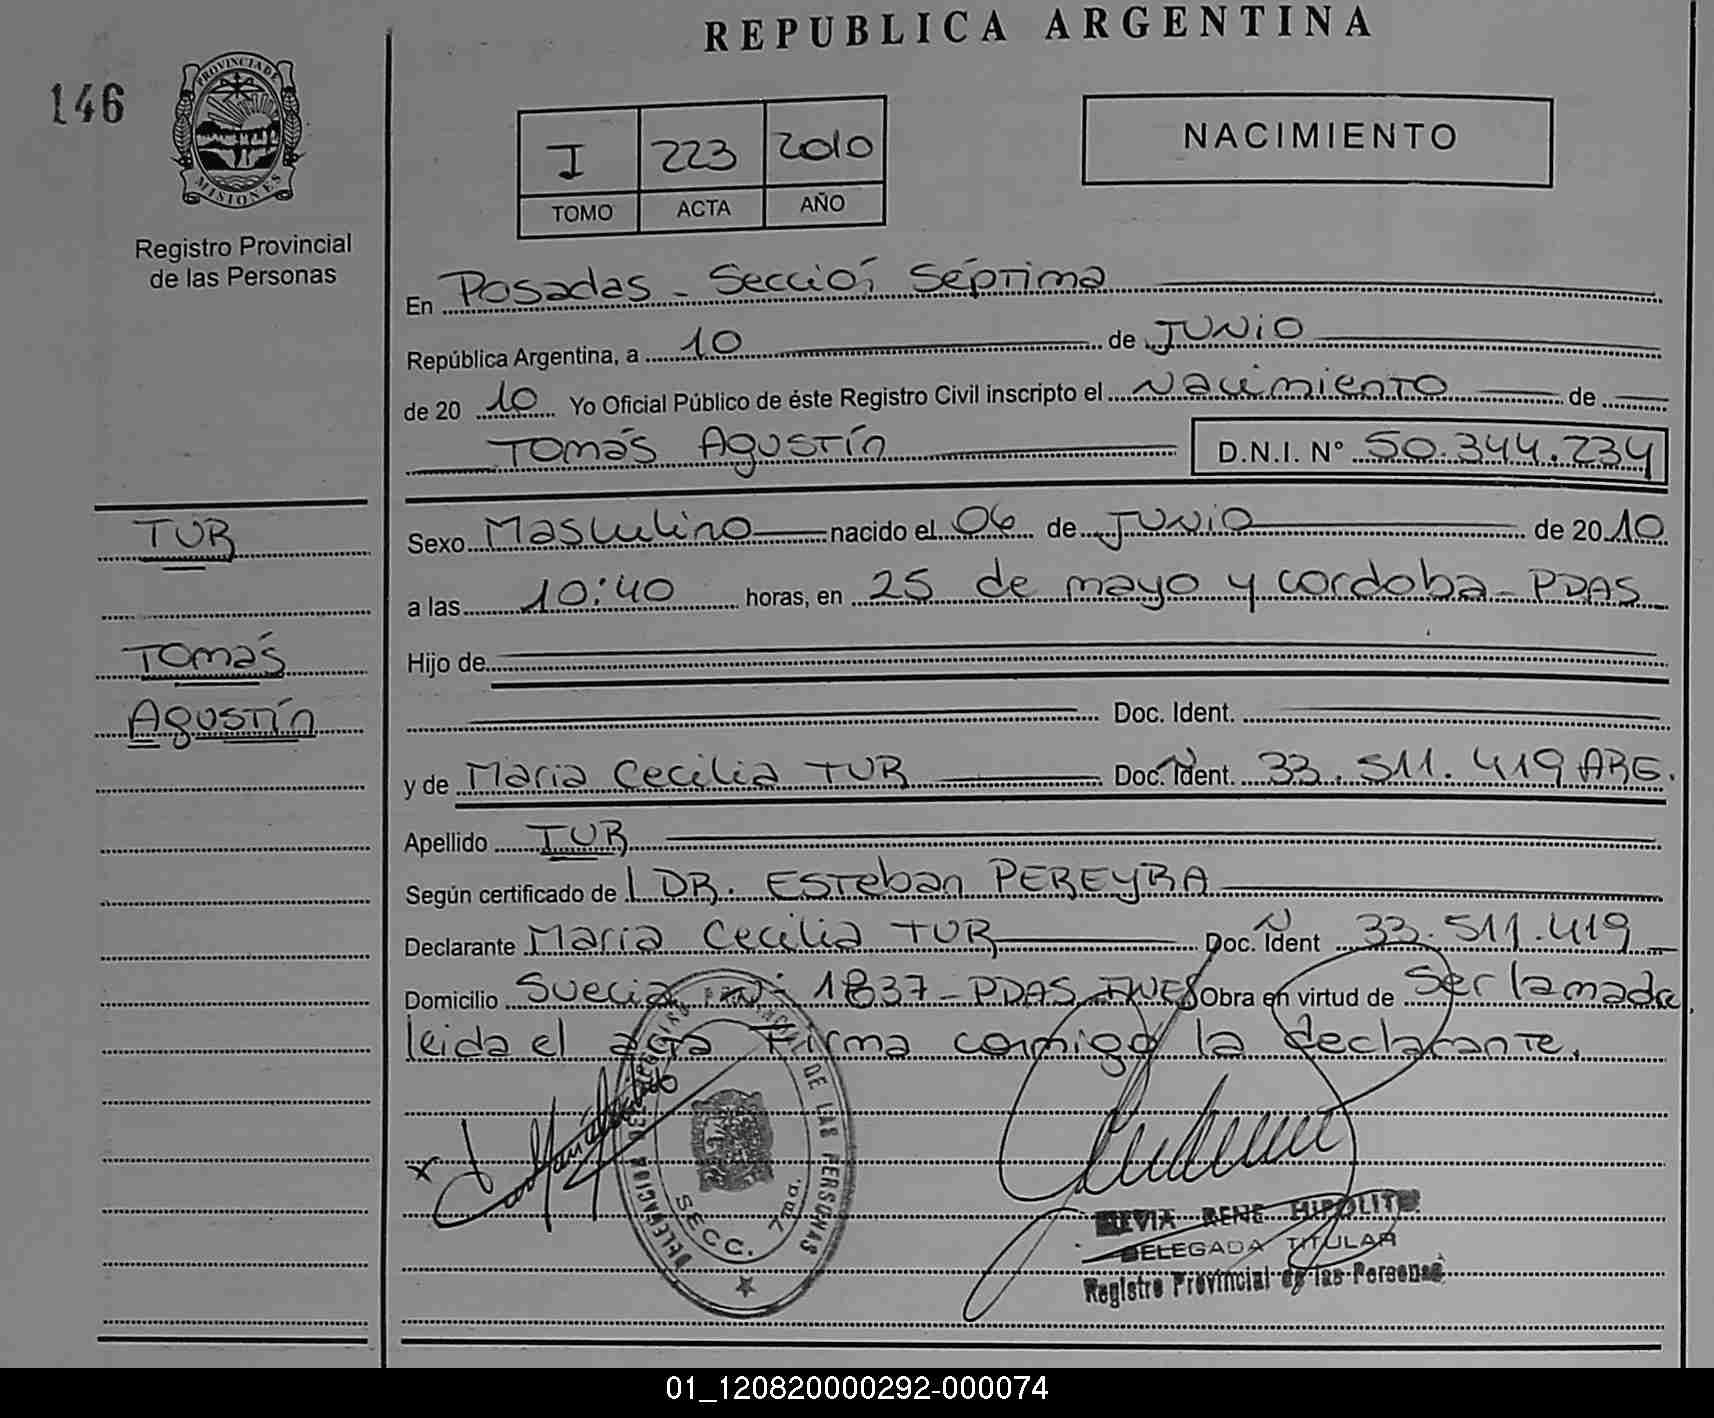 REPUBLICA ARGENTINA
146
PROVINCIA DE
MISIONES
Registro Provincial
de las Personas
I 223 2010
TOMO ACTA AÑO
NACIMIENTO
En Posadas - Sección Séptima
República Argentina, a 10 de JUNIO
de 20 10 Yo Oficial Público de éste Registro Civil inscripto el Nacimiento de
Tomás Agustín D.N.I. Nº 50.344.234
TUR
Tomás
Agustín
Sexo Masculino nacido el 06 de JUNIO de 2010
a las 10:40 horas, en 25 de mayo y cordoba - PDAS
Hijo de
Doc. Ident.
y de Maria Cecilia TUR Doc. Ident. 33.511.419 ARG.
Apellido TUR
Según certificado de l DR. Esteban PEREYRA
Declarante Maria Cecilia TUR Doc. Ident 33.511.419
Domicilio Suecia Nº 1837 - PDAS Obra en virtud de ser la madre
leida el acta firma conmigo la declarante.
DELEGACION REGISTRO PROVINCIAL DE LAS PERSONAS
SECC. 7ma.
RENE HIPOLITO
DELEGADA TITULAR
Registro Provincial de las Personas
01_120820000292-000074